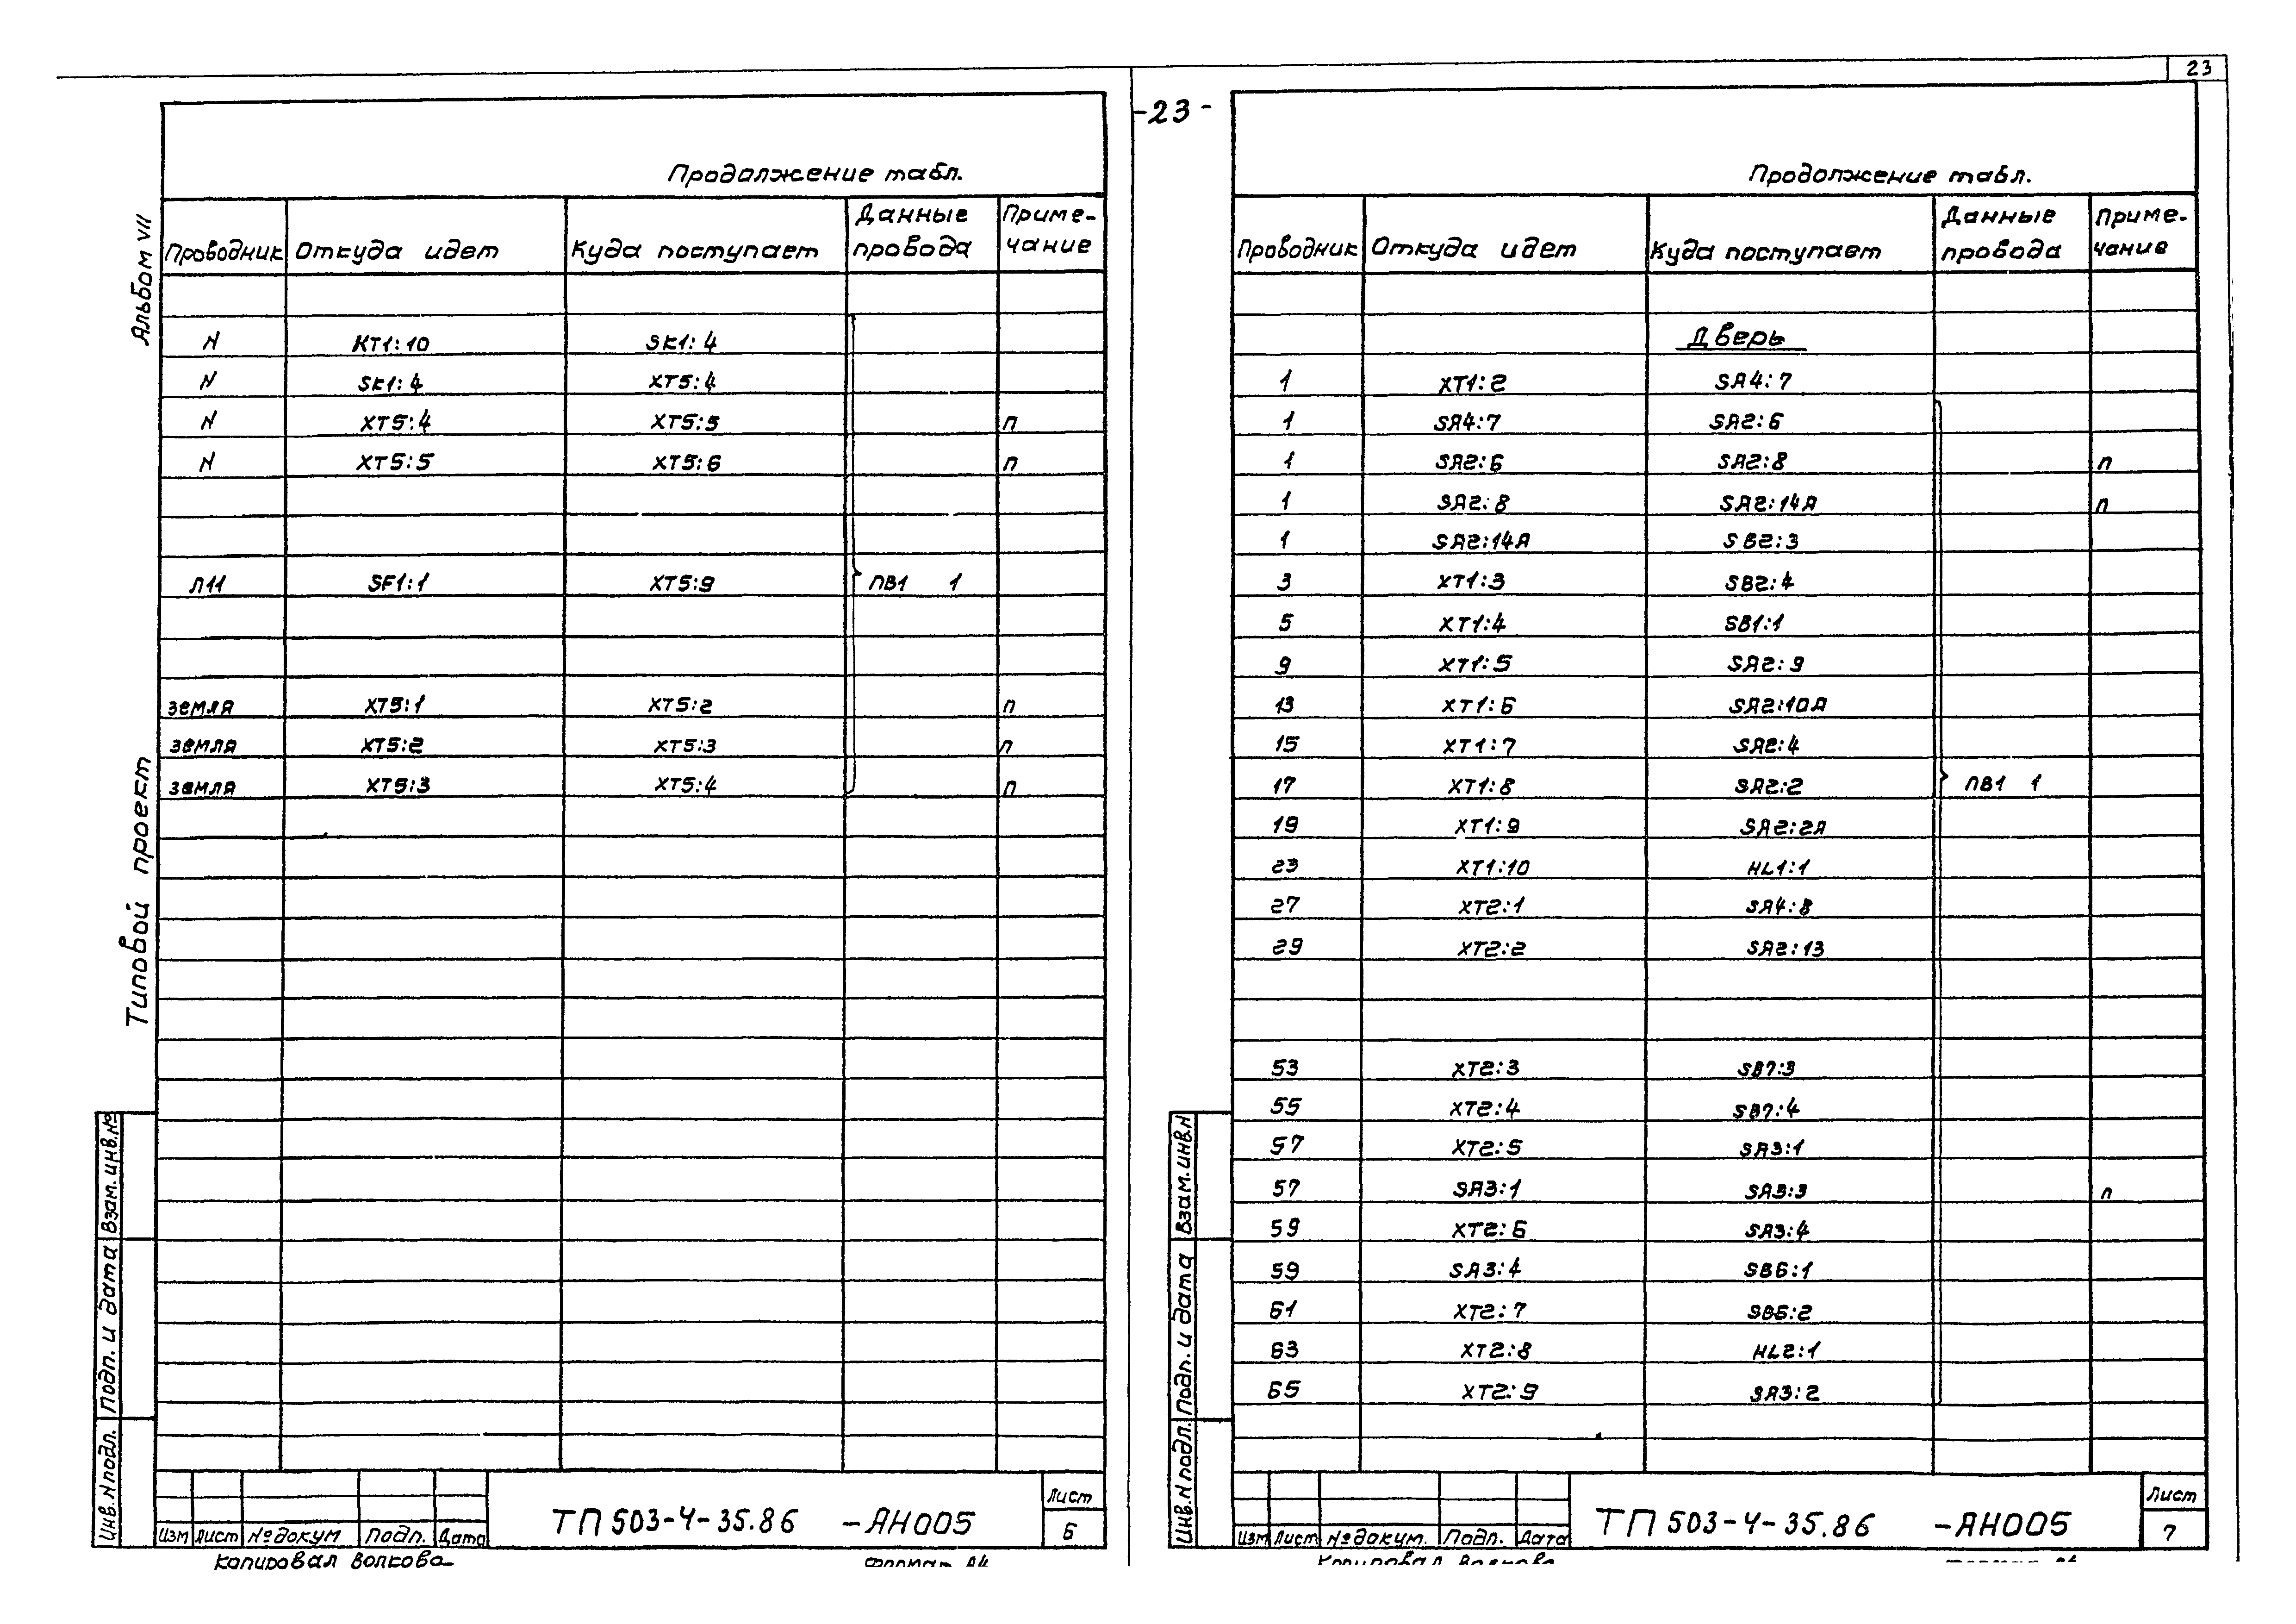 23
-23-
Альбом VII
Типовой проект
Продолжение табл.
Проводник Откуда идет Куда поступает Данные провода Приме-чание
N КТ1:10 SК1:4
N SК1:4 ХТ5:4
N ХТ5:4 ХТ5:5 п
N ХТ5:5 ХТ5:6 п
Л11 SF1:1 ХТ5:9 ПВ1 1
земля ХТ5:1 ХТ5:2 п
земля ХТ5:2 ХТ5:3 п
земля ХТ5:3 ХТ5:4 п
Инв.N подл. Подп. и дата Взам. инв.№
Изм Лист №докум Подп. Дата
ТП 503-4-35.86 -АН005
Лист
6
Копировал Волкова
Формат А4
Продолжение табл.
Проводник Откуда идет Куда поступает Данные провода Приме-чание
Дверь
1 ХТ1:2 SA4:7
1 SA4:7 SA2:6
1 SA2:6 SA2:8 п
1 SA2:8 SA2:14А п
1 SA2:14А SB2:3
3 ХТ1:3 SB2:4
5 ХТ1:4 SB1:1
9 ХТ1:5 SA2:9
13 ХТ1:6 SA2:10А
15 ХТ1:7 SA2:4
17 ХТ1:8 SA2:2 ПВ1 1
19 ХТ1:9 SA2:2А
23 ХТ1:10 HL1:1
27 ХТ2:1 SA4:8
29 ХТ2:2 SA2:13
53 ХТ2:3 SB7:3
55 ХТ2:4 SB7:4
57 ХТ2:5 SA3:1
57 SA3:1 SA3:3 п
59 ХТ2:6 SA3:4
59 SA3:4 SB6:1
61 ХТ2:7 SB6:2
63 ХТ2:8 HL2:1
65 ХТ2:9 SA3:2
Инв.N подл. Подп. и дата Взам. инв.N
Изм Лист №докум. Подп. Дата
ТП 503-4-35.86 -АН005
Лист
7
Копировал Волкова
Формат А4